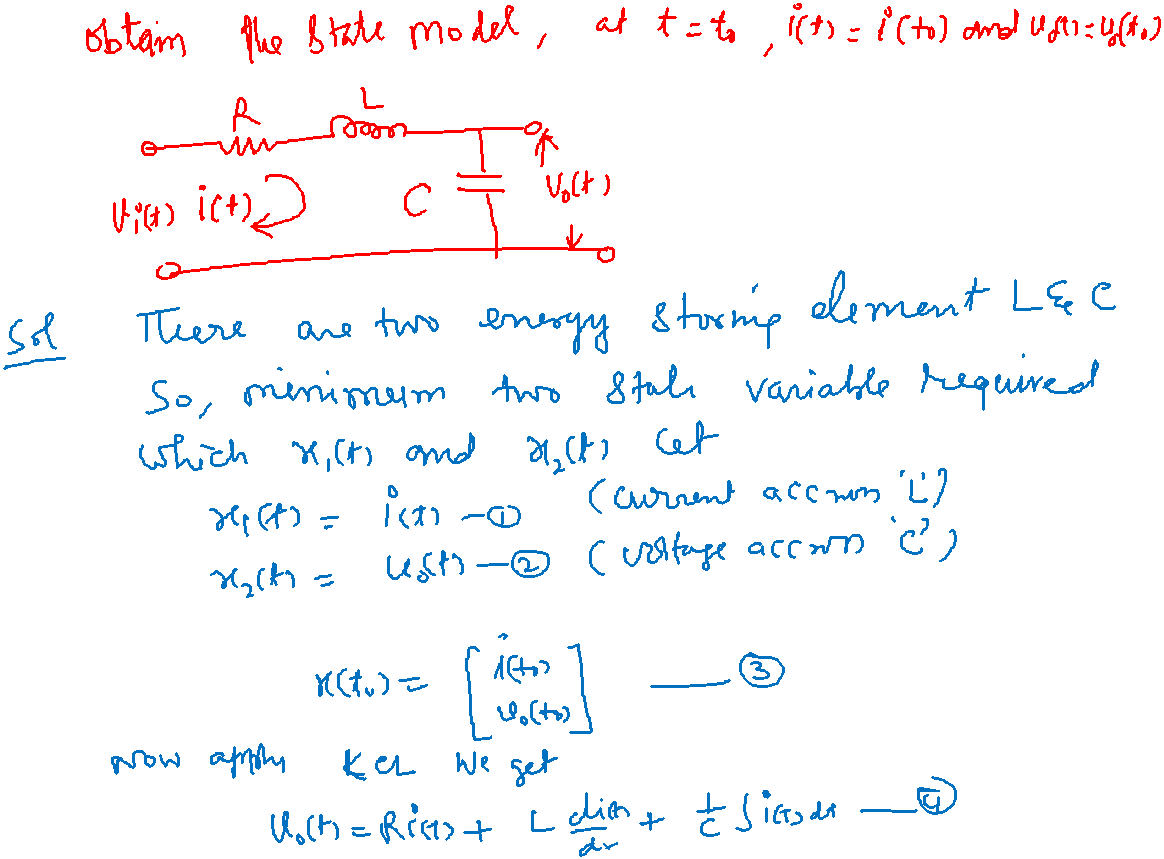 obtain the state model, at t = t₀, i(t) = i(t₀) and v₀(t) = v₀(t₀)
R L
vᵢ(t) i(t) C v₀(t)
Sol There are two energy storing element L & C
So, minimum two state variable required
which x₁(t) and x₂(t) Let
x₁(t) = i(t) —① (current accross 'L')
x₂(t) = v₀(t) —② (voltage accross 'C')
x(t₀) = [ i(t₀) —③
v₀(t₀) ]
now apply KCL we get
v₀(t) = Ri(t) + L di(t)/dt + 1/C ∫ i(t) dt —④